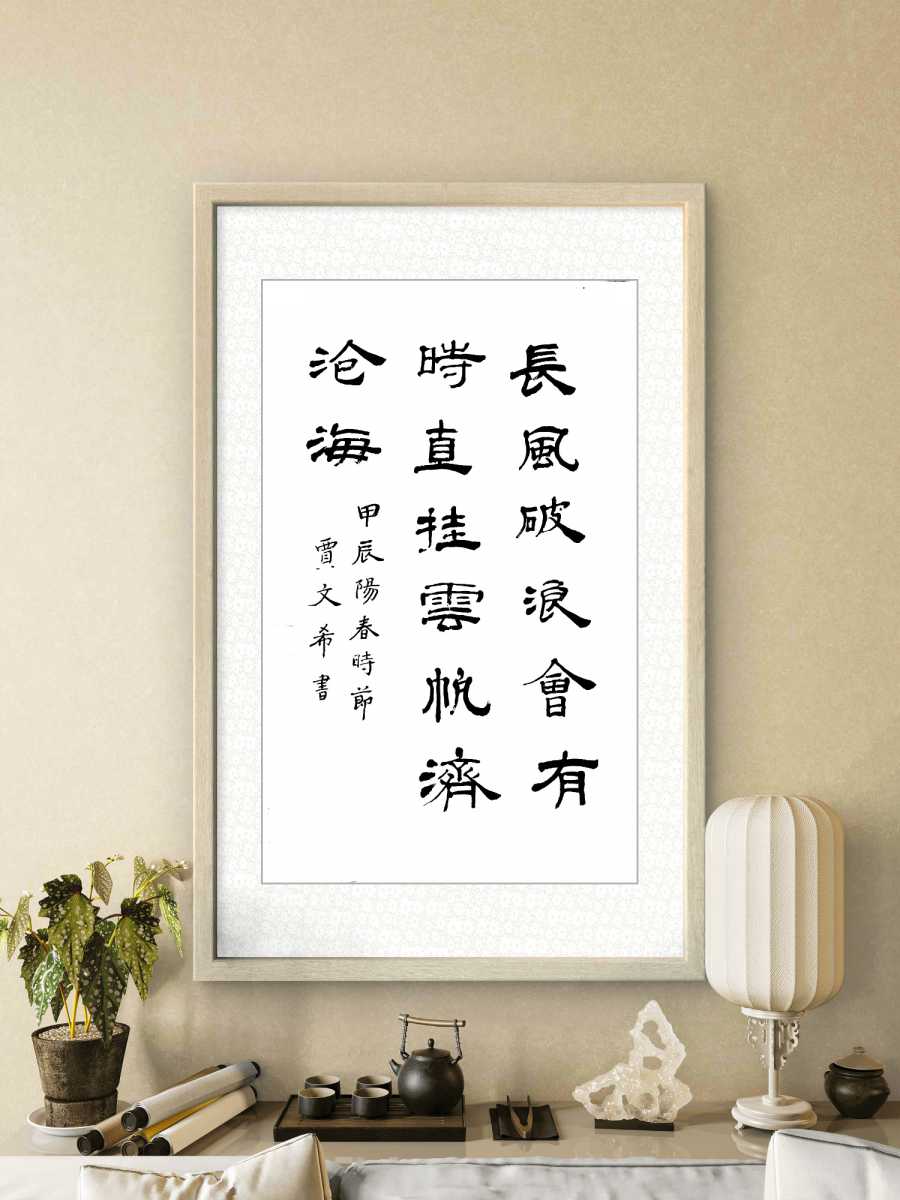 長風破浪會有
時直挂雲帆濟
沧海
甲辰陽春時節
賈文希書